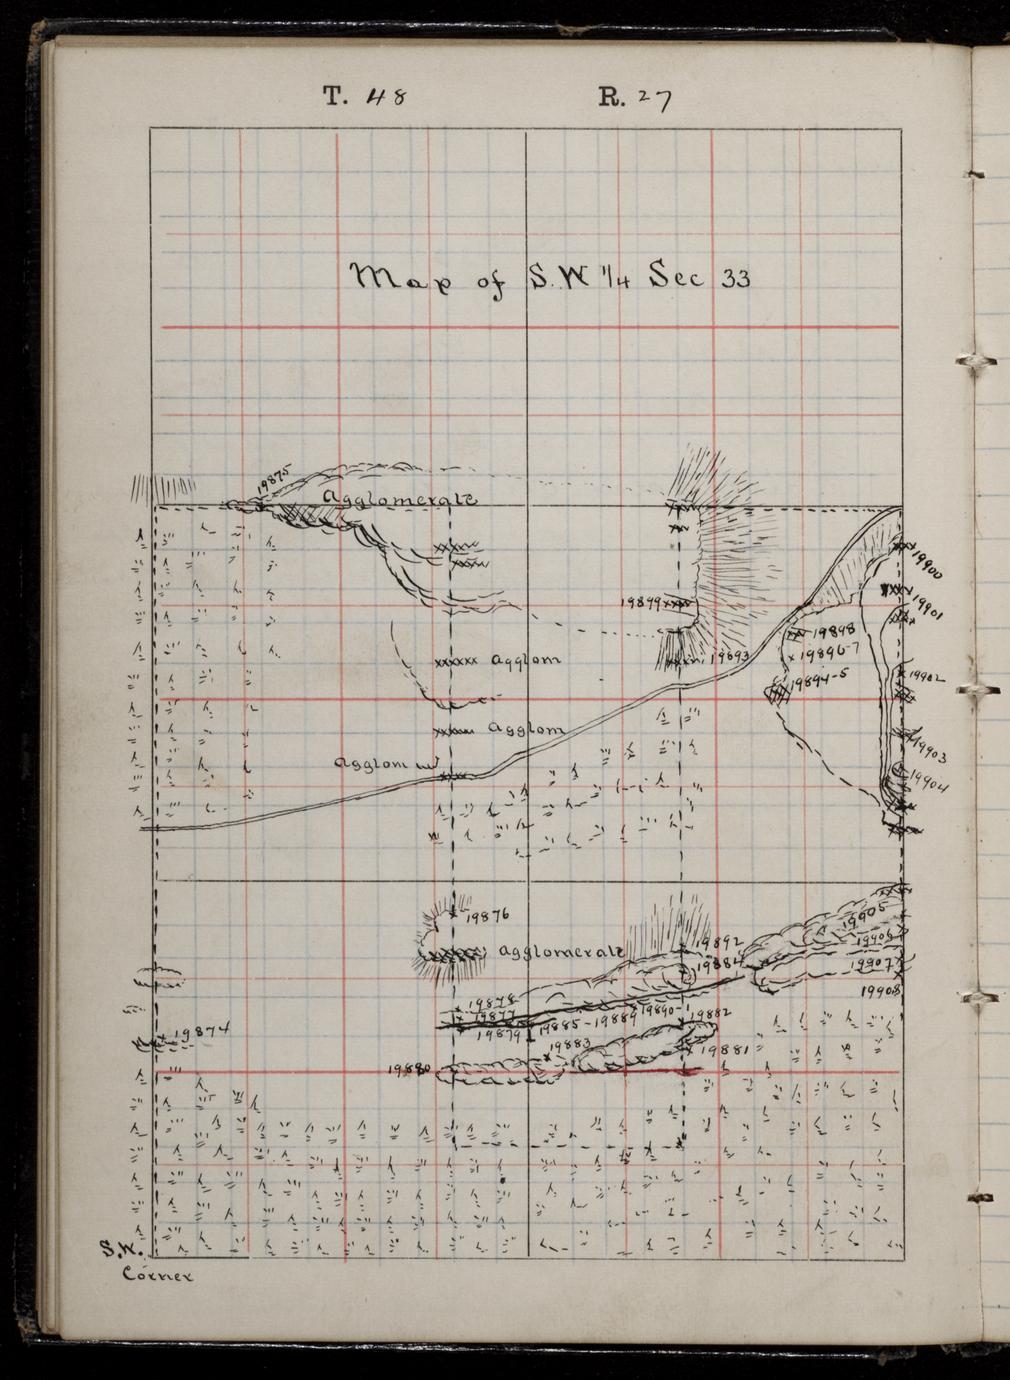 T. 48 R. 27
Map of S.W 1/4 Sec 33
19875
Agglomerate
19900
19899
19901
19898
19893
19896-7
Agglom
19902
19894-5
Agglom
19903
Agglom
19904
19876
19905
19892
19906
Agglomerate
19884
19907
19908
19878
19877
19890-1
19882
19874
19879
19885-19889
19883
19881
19880
S.W.
Corner